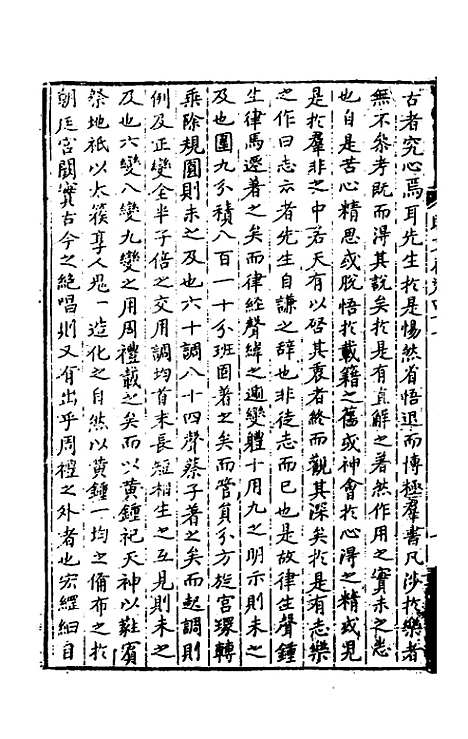 古者究心焉耳先生於是惕然省悟退而博極羣書凡涉於樂者
無不參考既而得其說矣於是有直解之著然作用之實未之悉
也自是苦心精思或脫悟於載籍之舊或神會於心得之精或見
是於羣非之中若天有以啓其衷者終而觀其深矣於是有志樂
之作曰志云者先生自謙之辭也非徒志而已也是故律生聲鍾
生律馬遷著之矣而律經聲緯之遞變體十用九之明示則未之
及也圍九分積八百一十分班固著之矣而管負九方旋宮環轉
乘除規圓則未之及也六十調八十四聲蔡子著之矣而起調則
例及正變全半子倍之交用調均首末長短相生之互見則未之
及也六變八變九變之用周禮載之矣而以黃鍾祀天神以蕤賓
祭地祇以太簇享人鬼一造化之自然以黃鍾一均之備布之於
朝廷宮闕實古今之絶唱則又有出乎周禮之外者也宏經細目